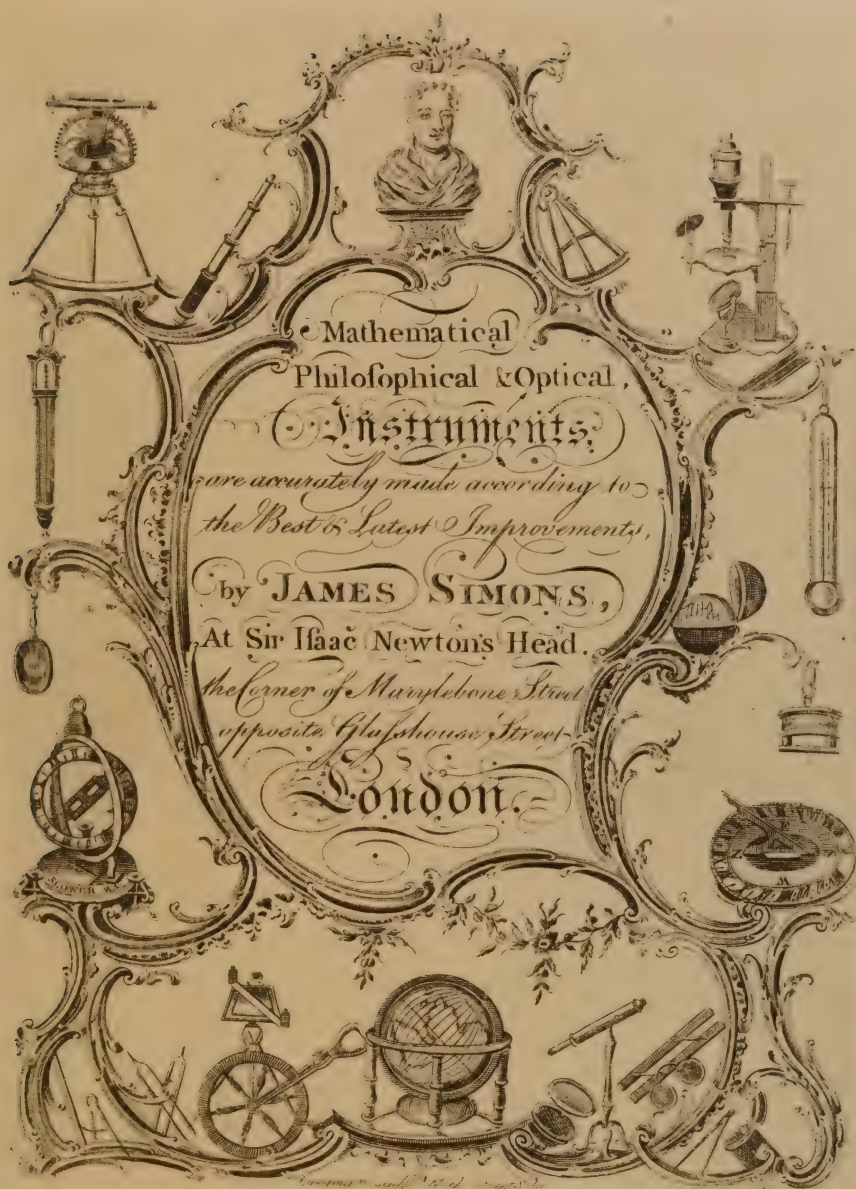 Mathematical
Philoſophical & Optical,
Instruments,
are accurately made according to
the Best & Latest Improvements,
by JAMES SIMONS,
At Sir Iſaac Newton's Head.
the Corner of Marylebone Street
opposite Glaſshouse Street
London.